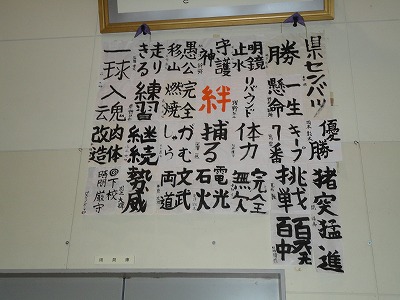 県センバツ
優勝
猪突猛進
勝
一生懸命
キープ7番
挑戦
百発百中
明鏡止水
リバウンド
体力
完全無欠
守護神
絆
捕る
電光石火
愚公移山
完全燃焼
がむしゃら
文武両道
走りきる
練習継続
勢威
一球入魂
肉体改造
◎下校時間厳守